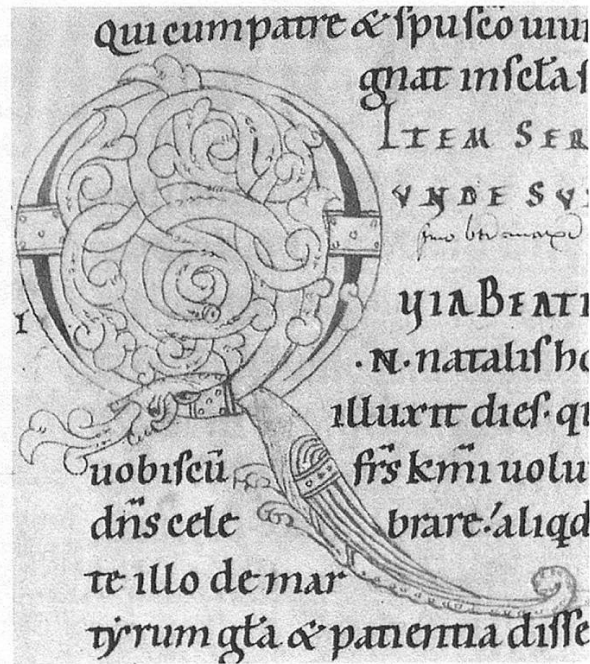 Qui cum patre & sp̄u sc̄o uiui
gnat in sc̄ła s
ITEM SER
VNDE SV
QUIA BEATI
I
·N· natalis ho
illuxit dies· qu
uobiscū fr̄s km̄i uolu
dn̄s cele brare· aliqd
te illo de mar
tẏrum gła & patientia disse